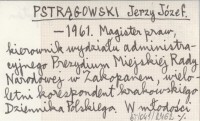 PSTRĄGOWSKI Jerzy Józef.
—1961. Magister praw,
kierownik wydziału administra-
cyjnego Prezydium Miejskiej Rady
Narodowej w Zakopanem, wielo-
letni korespondent krakowskiego
Dziennika Polskiego. W młodości